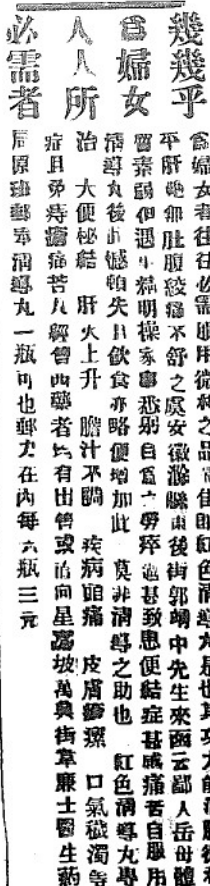 幾幾乎
爲婦女
人人所
必需者
爲婦女者往往必需服用微利之品最佳即紅色清導丸是也其功力能清腸後利
平肝絶無肚腹絞痛不舒之虞安徽滁縣南後街郭嵎中先生來函云鄙人岳母體
質素弱但遇小精明操家事悉躬自爲之勞瘁過甚致患便結症甚感痛苦自服用
清導丸後此憾頓失且飲食亦略便增加此 莫非清導之助也 紅色清導丸專
治 大便秘結 肝火上升 膽汁不調 疾病頭痛 皮膚癬瘰 口氣穢濁等
症且弟痔瘡痛苦凡經售西藥者均有出售或直向星嘉坡萬興街韋廉士醫生藥
局原班郵奉清導丸一瓶可也郵力在內每六瓶三元